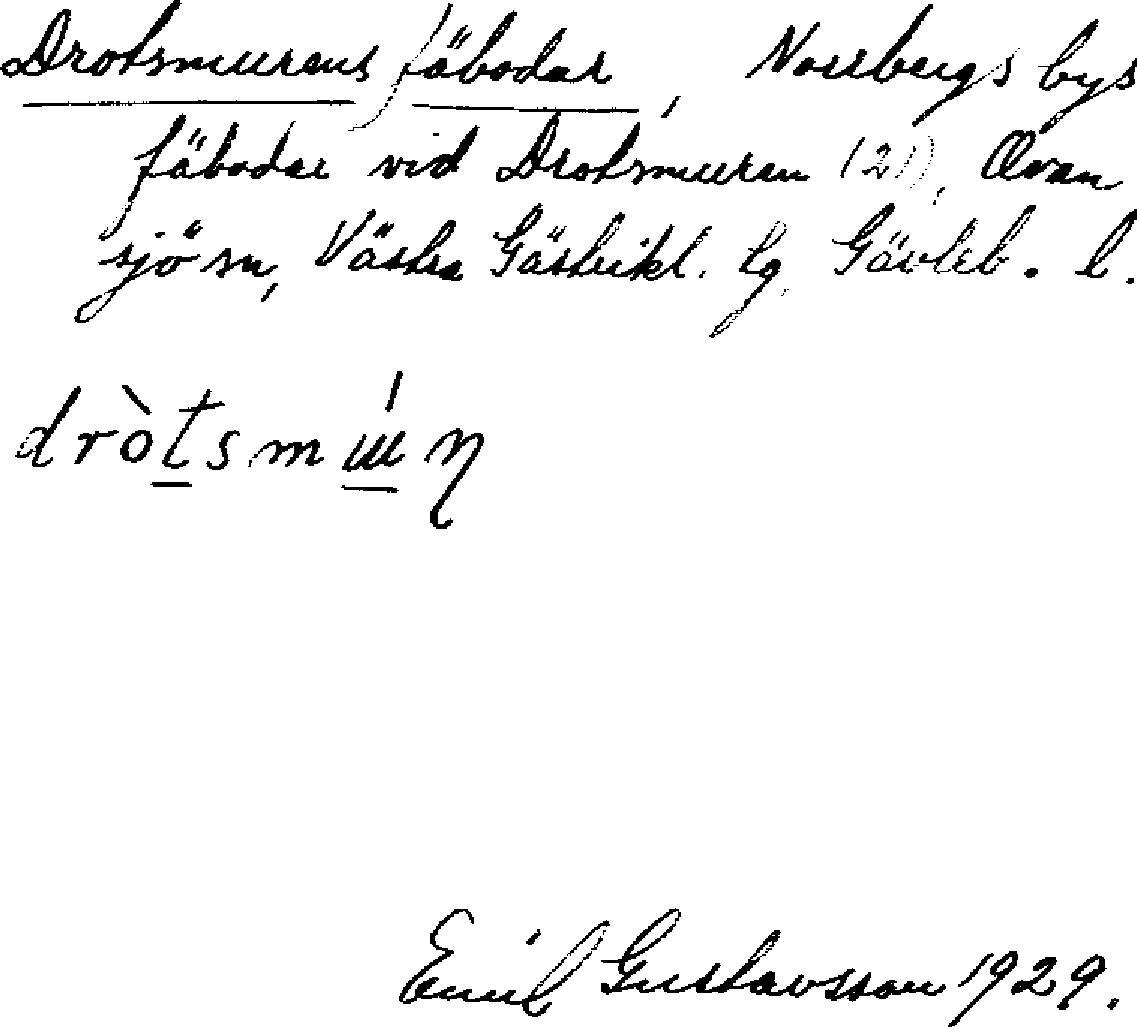 Drotsmurens fäbodar, Norrbergs bys
fäbodar vid Drotsmuren (2)), Ovan
sjö sn, Västra Gästrikl. tg, Gävleb. l.
Emil Gustavsson 1929.